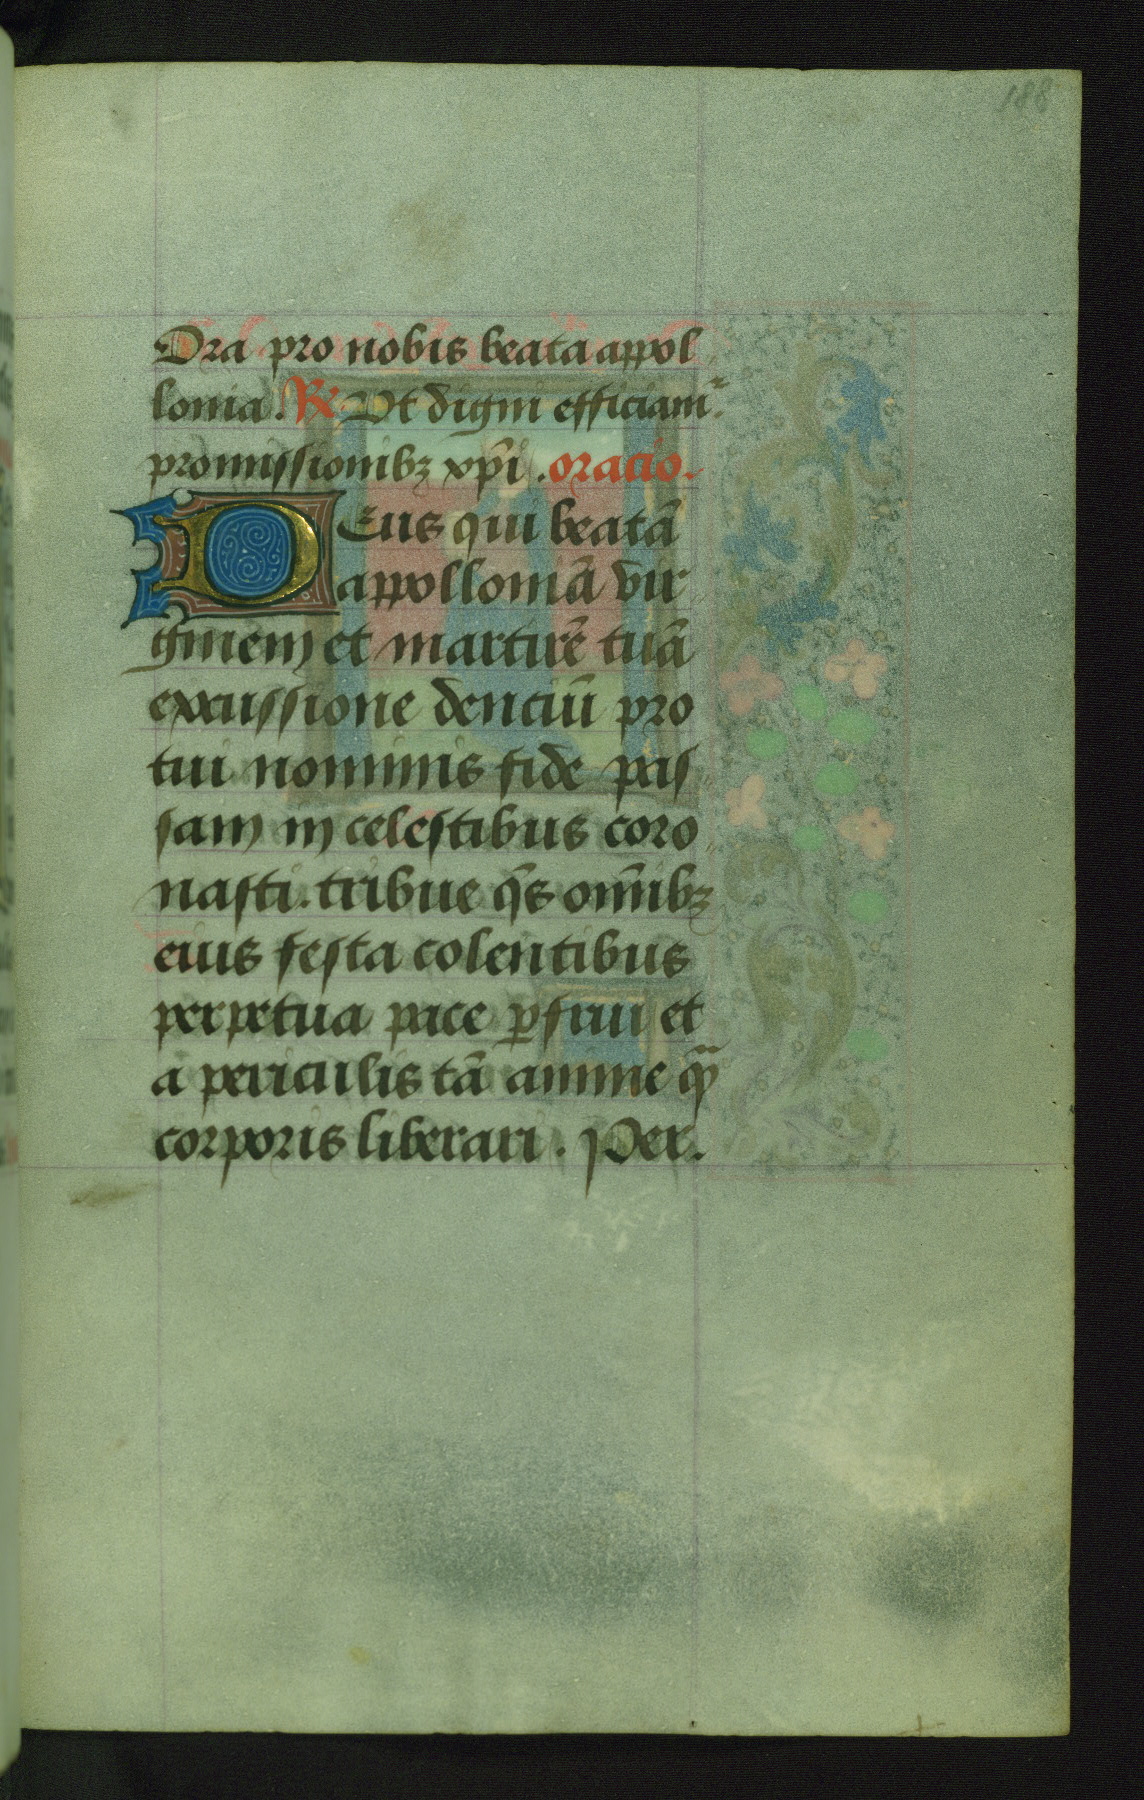 188
Ora pro nobis beata appol
lonia. ℟ Vt digni efficiam̃.
promissionibꝫ xp̄i . oracio.
Deus qui beatā
appolloniā vir
ginem et martirē tuā
excussione denciū pro
tui nominis fide pas
sam in celestibus coro
nasti. tribue q̄s om̄ibꝫ
eius festa colentibus
perpetua pace ꝑfrui et
a periculis tā anime qͫ̄
corporis liberari. Per.